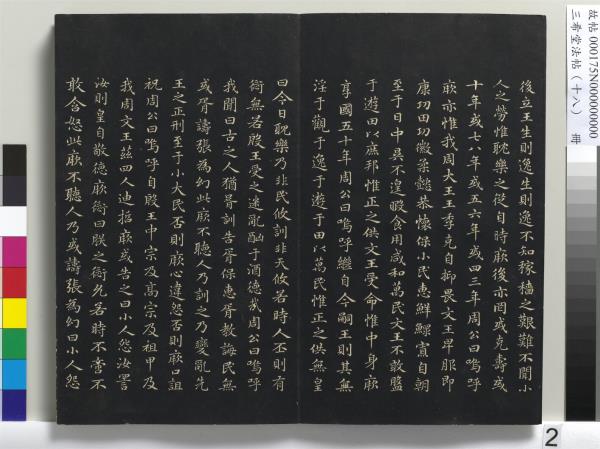 後立王生則逸生則逸不知稼穡之艱難不聞小
人之勞惟耽樂之從自時厥後亦罔或克壽或
十年或七八年或五六年或四三年周公曰嗚呼
厥亦惟我周大王王季克自抑畏文王卑服即
康功田功徽柔懿恭懷保小民惠鮮鰥寡自朝
至于日中昃不遑暇食用咸和萬民文王不敢盤
于遊田以庶邦惟正之供文王受命惟中身厥
享國五十年周公曰嗚呼繼自今嗣王則其無
淫于觀于逸于遊于田以萬民惟正之供無皇
曰今日耽樂乃非民攸訓非天攸若時人丕則有
愆無若殷王受之迷亂酗于酒德哉周公曰嗚呼
我聞曰古之人猶胥訓告胥保惠胥教誨民無
或胥譸張為幻此厥不聽人乃訓之乃變亂先
王之正刑至于小大民否則厥心違怨否則厥口詛
祝周公曰嗚呼自殷王中宗及高宗及祖甲及
我周文王茲四人迪哲厥或告之曰小人怨汝詈
汝則皇自敬德厥愆曰朕之愆允若時不啻不
敢含怒此厥不聽人乃或譸張為幻曰小人怨
故帖 000175N000000000
三希堂法帖（十八） 冊
2